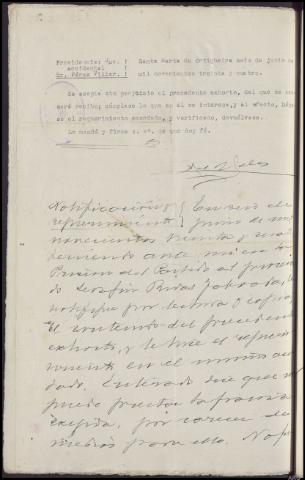 Providencia: Juez
accidental
Sr. Pérez Villar.
Santa Marta de Ortigueira seis de junio de
mil novecientos treinta y cuatro.
Se acepta sin perjuicio el precedente exhorto, del que se
será recibo; cúmplase lo que en él se interesa, y al efecto, hága
se el requerimiento acordado, y verificado, devuélvase.
Lo mandó y firma S. Sª. de que doy fé.
Notificación y
requerimiento
En seis de
junio de mil
novecientos treinta y cuatro
teniendo ante mí en la
Prisión del Partido al
Serafín
notifiqué por lectura y copia
el contenido del precedente
exhorto, y le hice el requeri
miento en el mismo acor
dado. Enterado dice que no
puede prestar la fianza
exigida, por carecer de
medios para ello. No